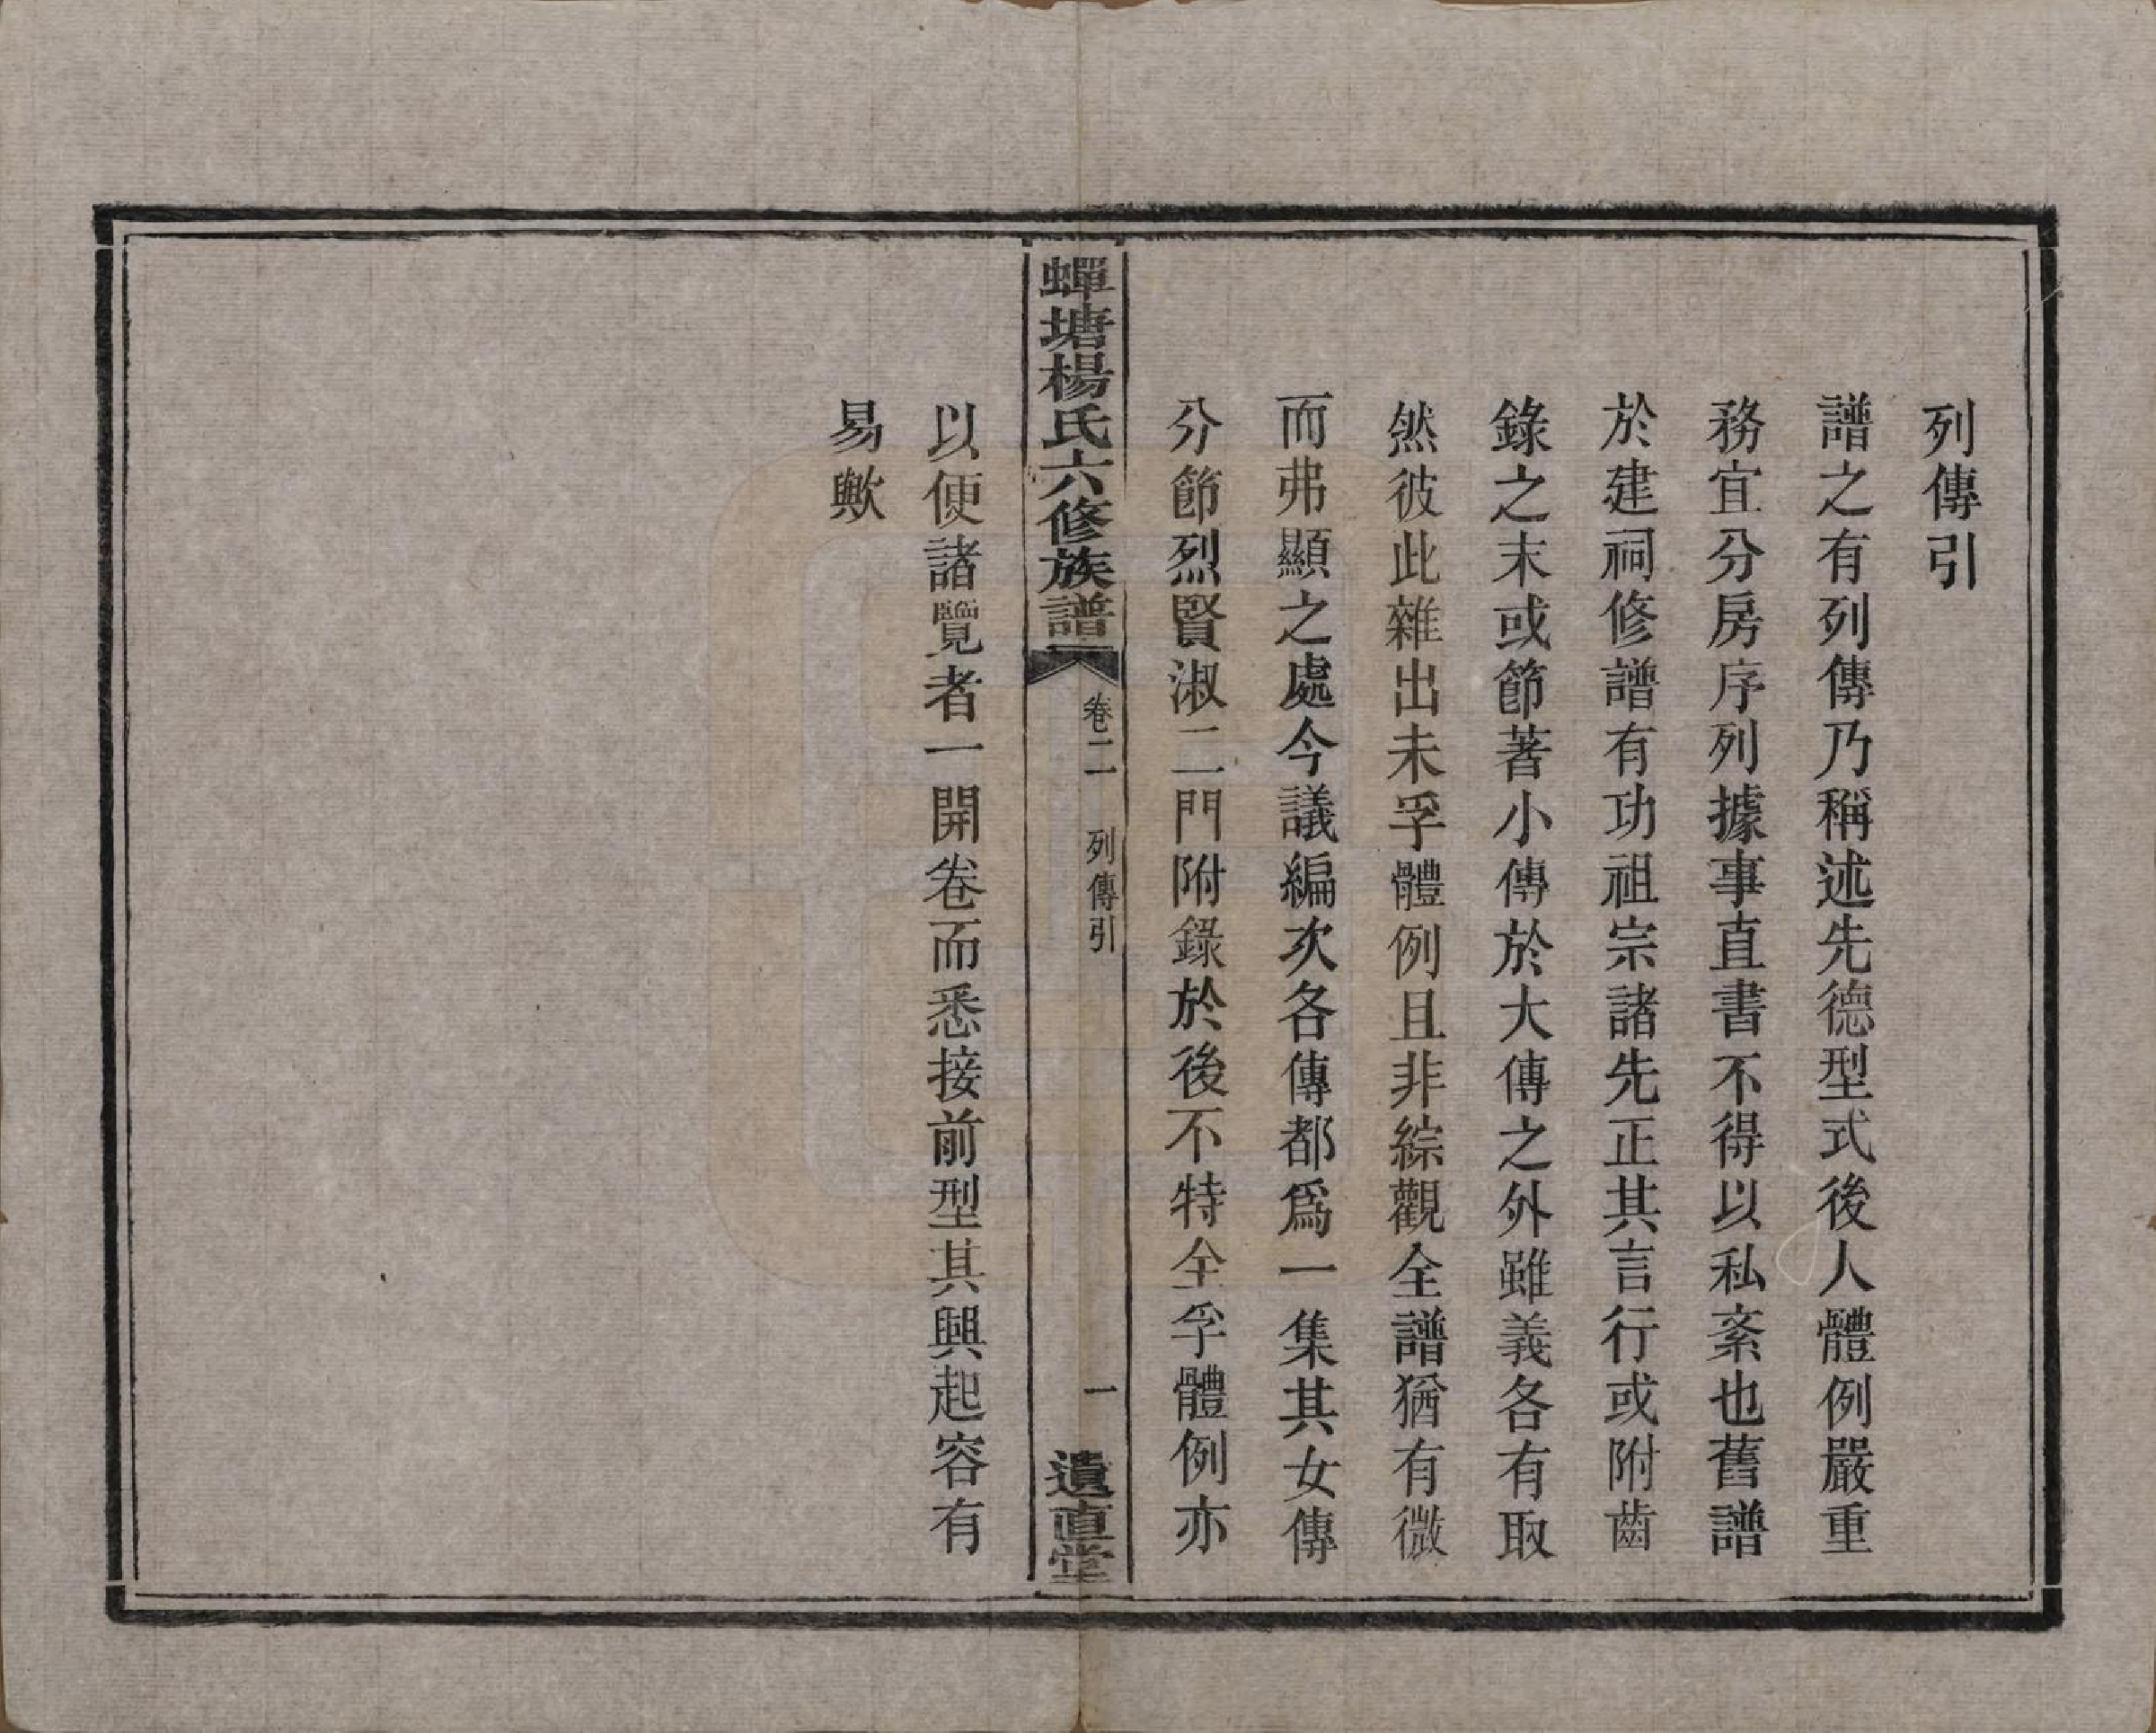 列傳引
譜之有列傳乃稱述先德型式後人體例嚴重
務宜分房序列據事直書不得以私紊也舊譜
於建祠修譜有功祖宗諸先正其言行或附齒
錄之末或節著小傳於大傳之外雖義各有取
然彼此雜出未孚體例且非綜觀全譜猶有微
而弗顯之處今議編次各傳都爲一集其女傳
分節烈賢淑二門附錄於後不特全孚體例亦
蟬塘楊氏六修族譜
卷二
列傳引
一
遺直堂
以便諸覽者一開卷而悉接前型其興起容有
易歟